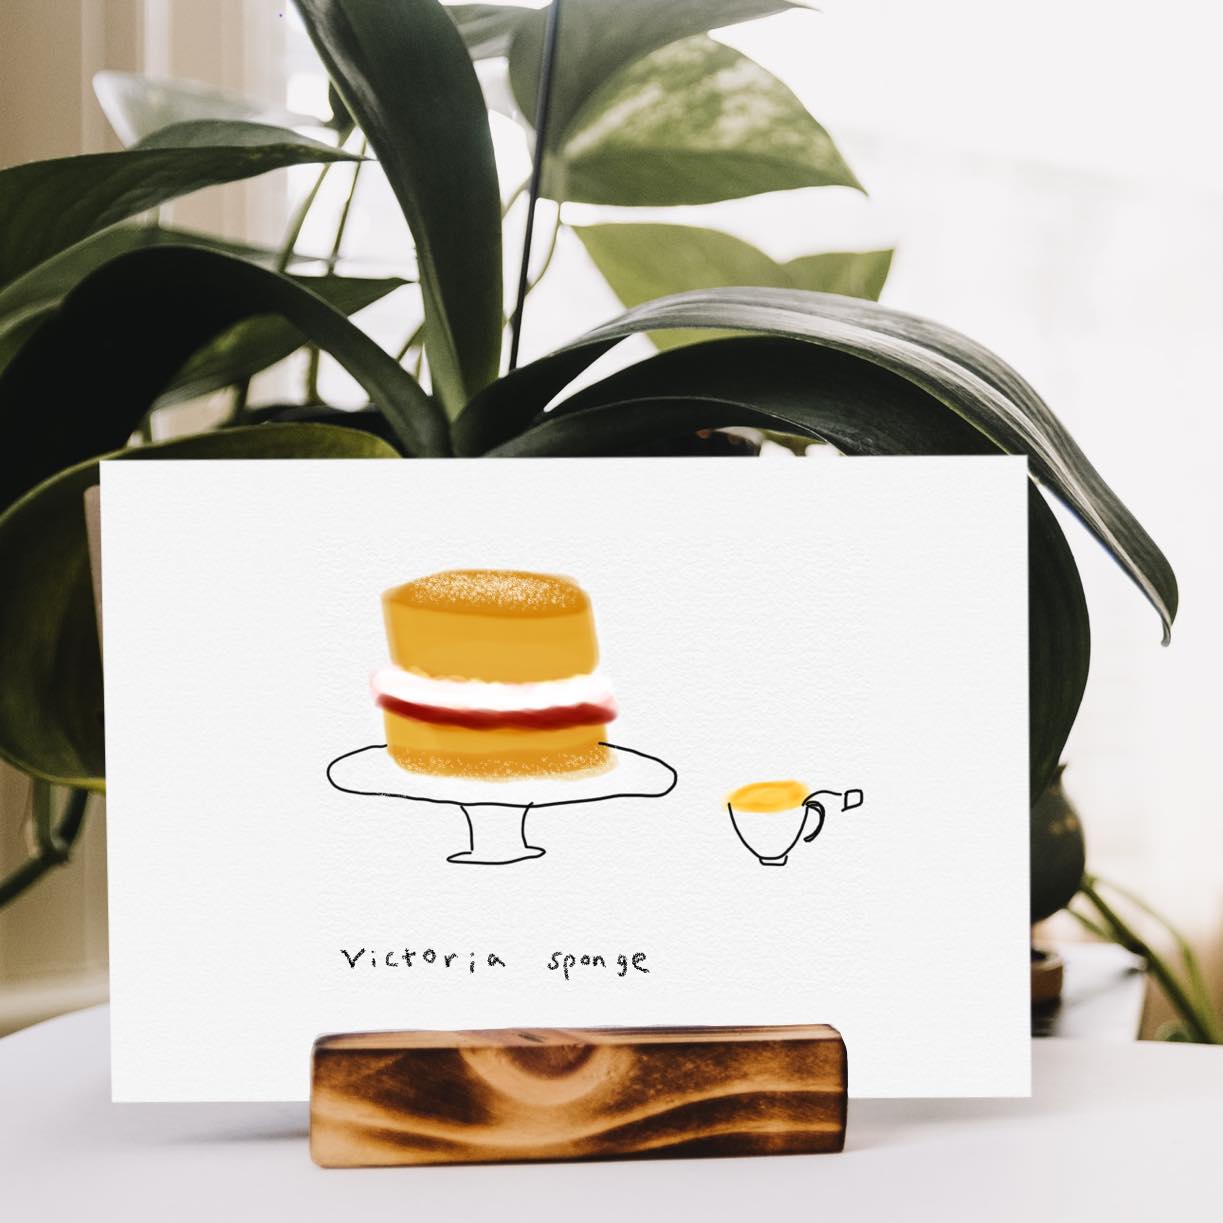 Victoria sponge